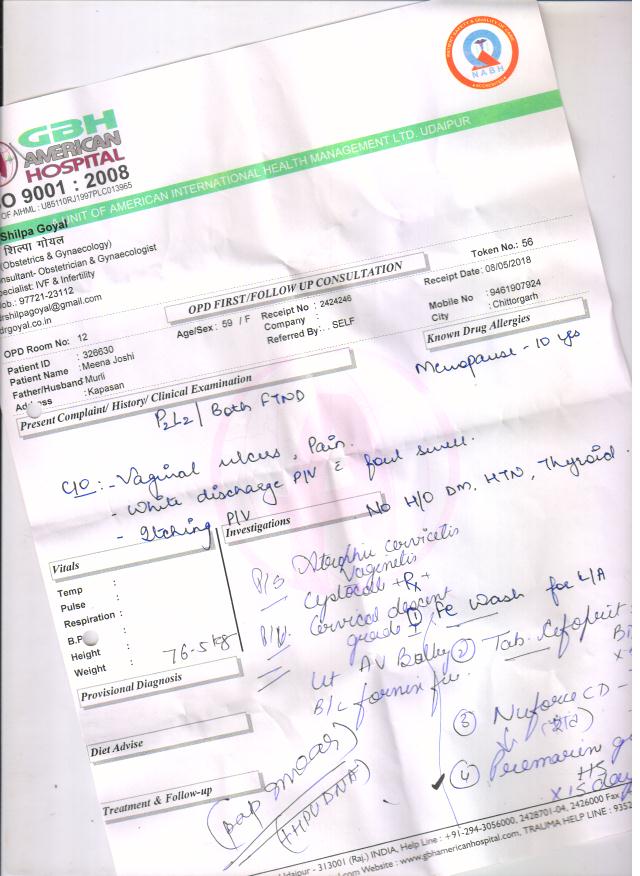 NABH
GBH
AMERICAN
HOSPITAL
O 9001 : 2008
OF AIHML : U85110RJ1997PLC013965
A UNIT OF AMERICAN INTERNATIONAL HEALTH MANAGEMENT LTD. UDAIPUR
Shilpa Goyal
शिल्पा गोयल
(Obstetrics & Gynaecology)
nsultant- Obstetrician & Gynaecologist
pecialist: IVF & Infertility
ob.: 97721-23112
rshilpagoyal@gmail.com
drgoyal.co.in
Token No.: 56
OPD FIRST/FOLLOW UP CONSULTATION
Receipt Date : 08/05/2018
OPD Room No: 12
Age/Sex : 59 / F
Receipt No : 2424246
Mobile No : 9461907924
Patient ID : 326630
Company :
City : Chittorgarh
Patient Name : Meena Joshi
Referred By : SELF
Father/Husband Murli
Known Drug Allergies
Address : Kapasan
Menopause - 10 yrs
Present Complaint/ History/ Clinical Examination
P2L2 / Both FTND
C/O :- Vaginal ulcers, Pain.
- White discharge P/V c foul smell.
- Itching P/V
No H/O DM, HTN, Thyroid.
Vitals
Investigations
Temp :
Pulse :
Respiration :
B.P :
Height :
Weight : 76.5 kg
P/S Atrophic cervicitis
vaginitis
Cystocele +R+
P/V. Cervical descent
grade I
Ut AV Bulky
B/L fornix free
① Fe Wash for L/A
② Tab. Cefoprit
③ Nuforce CD -
④ Premarin
HS
x 15 day
Provisional Diagnosis
Diet Advise
Treatment & Follow-up
(Pap smear)
(HPV DNA)
Udaipur - 313001 (Raj.) INDIA, Help Line : +91-294-3056000, 2428701-04, 2426000 Fax
Website : www.gbhamericanhospital.com, TRAUMA HELP LINE : 9352